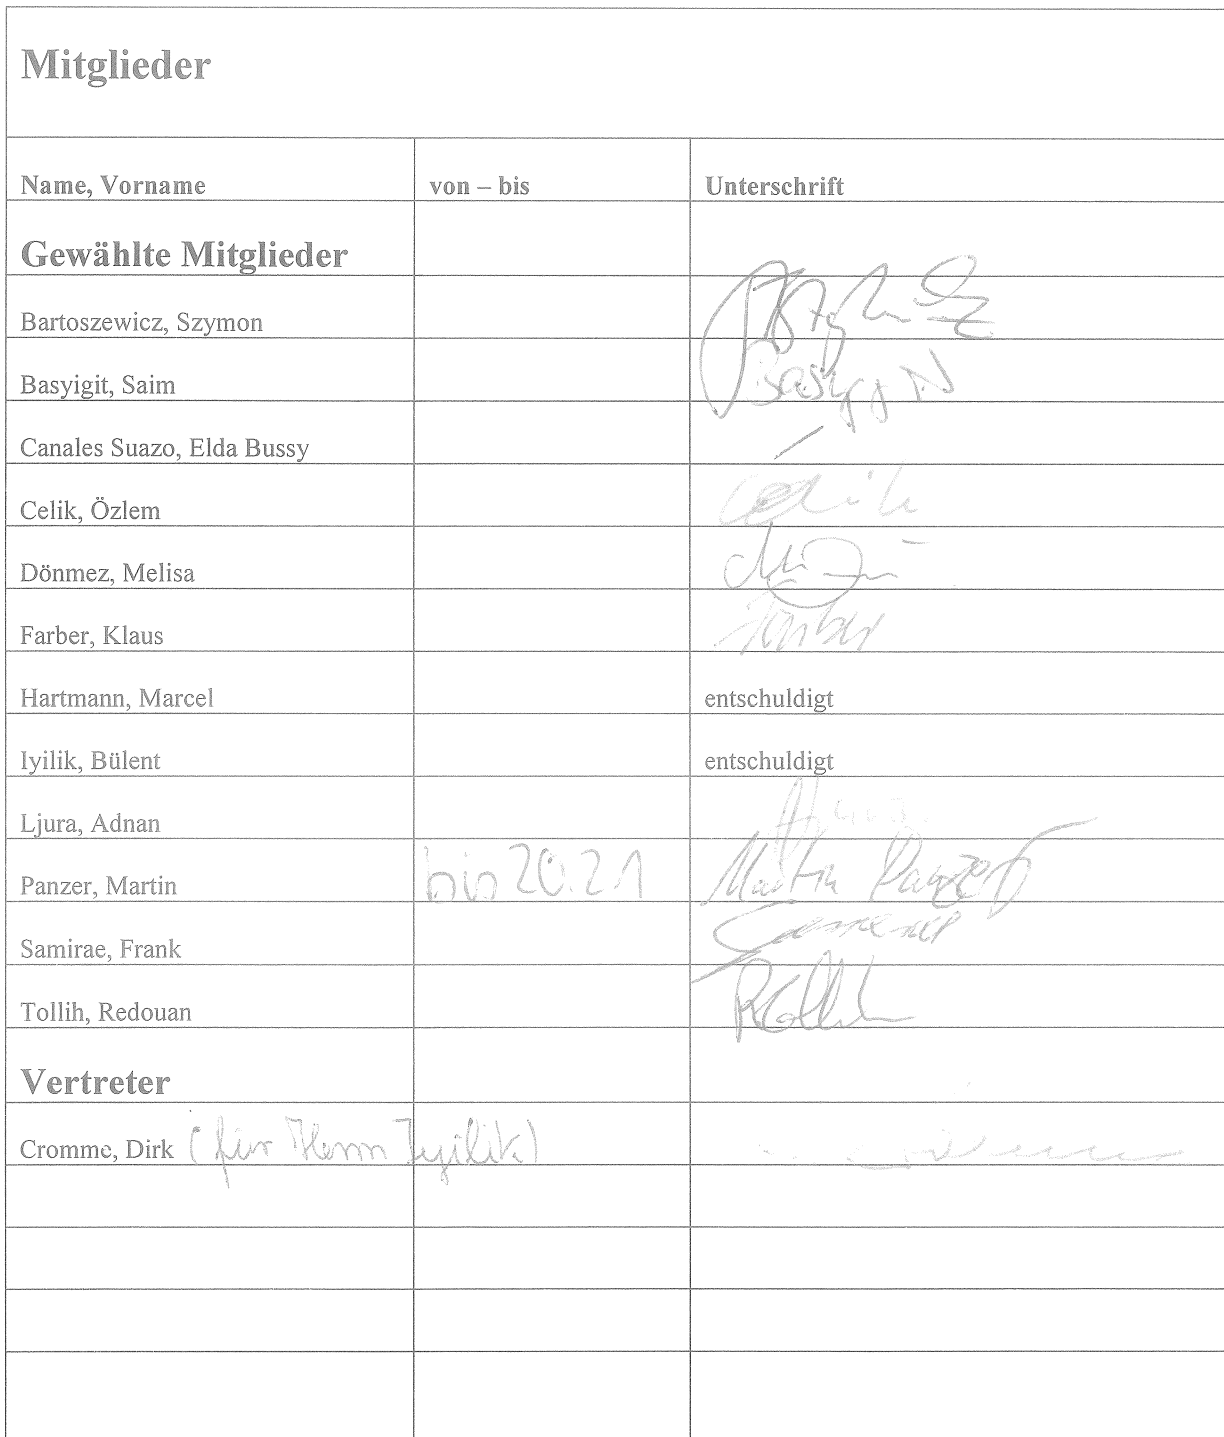 Mitglieder
Name, Vorname von – bis Unterschrift
Gewählte Mitglieder
Bartoszewicz, Szymon
Basyigit, Saim
Canales Suazo, Elda Bussy
Celik, Özlem Celik
Dönmez, Melisa
Farber, Klaus Farber
Hartmann, Marcel entschuldigt
Iyilik, Bülent entschuldigt
Ljura, Adnan
Panzer, Martin bis 20.21 Martin Panzer
Samirae, Frank
Tollih, Redouan
Vertreter
Cromme, Dirk (für Herrn Iyilik)